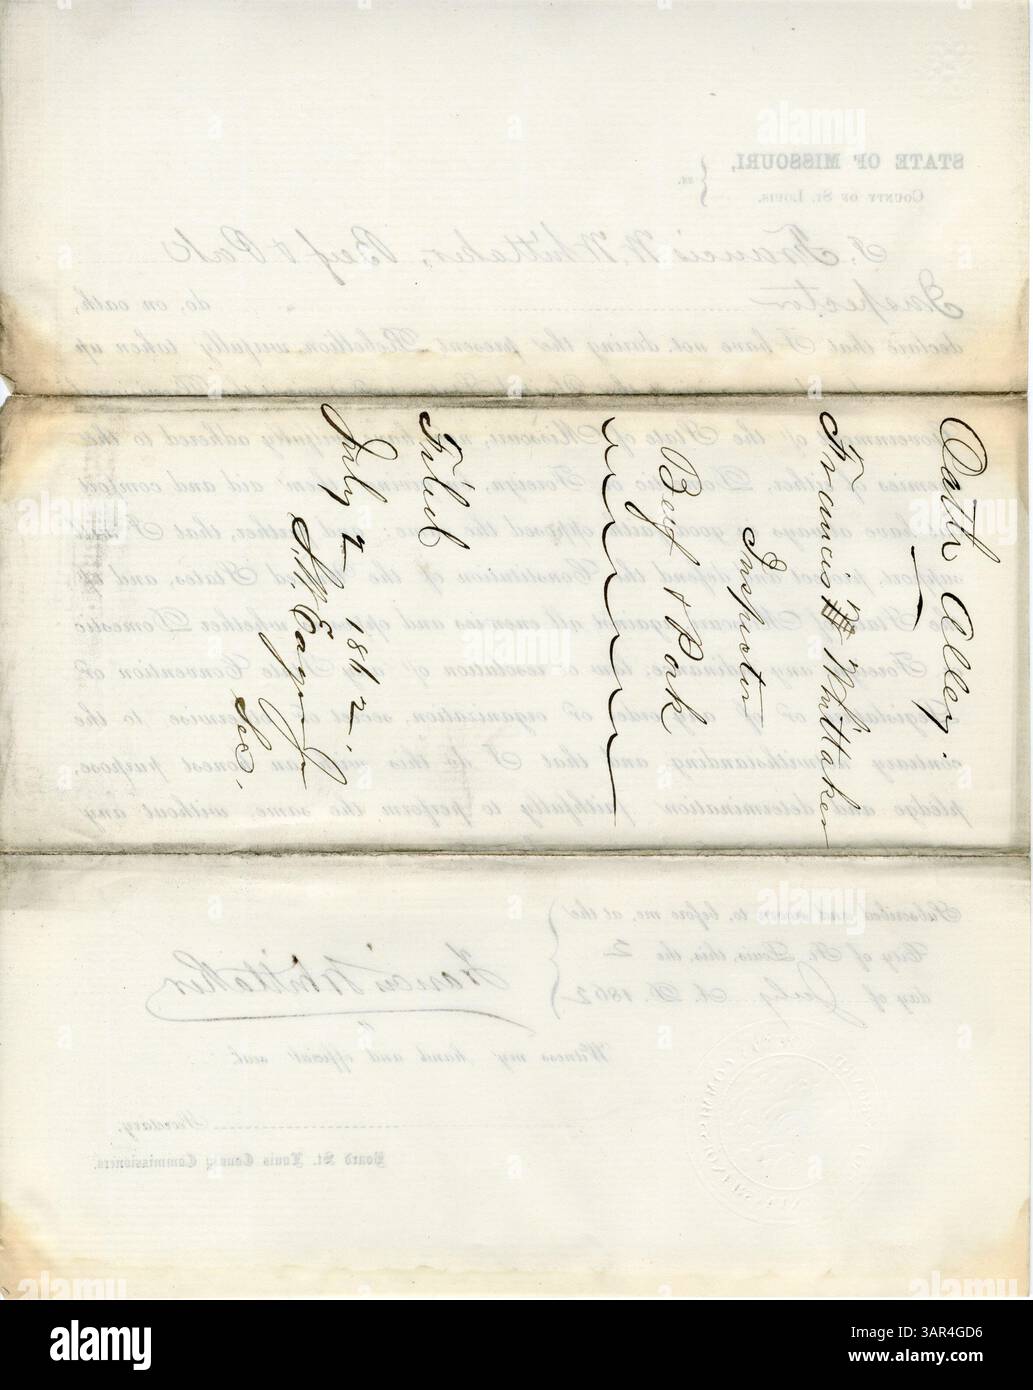 Oath Alleg.
Francis Whittaker
Inspector
Beef & Pork
Filed
July 2 1862
Sec.
STATE OF MISSOURI,
COUNTY OF ST. LOUIS.
ss.
I, Francis W. Whittaker, Beef & Pork
Inspector do, on oath,
declare that I have not, during the present Rebellion, wilfully taken up
Government of the State of Missouri, nor have wilfully adhered to the
enemies of either, Domestic or Foreign, in giving them aid and comfort
have always in good faith opposed the same; and further, that I will
support, protect and defend the Constitution of the United States, and of
the State of Missouri against all enemies and opposers whether Domestic
or Foreign any ordinance, law, or resolution of any State Convention or
Legislature or of any order or organization, secret or otherwise to the
contrary notwithstanding, and that I do this with an honest purpose,
pledge and determination faithfully to perform the same, without any
Subscribed and sworn to, before me, at the
City of St. Louis, this the 2
day of July A. D. 1862
Francis Whittaker
Witness my hand and official seal.
Secretary,
Board St. Louis County Commissioners.
alamy
Image ID: 3AR4GD6
www.alamy.com